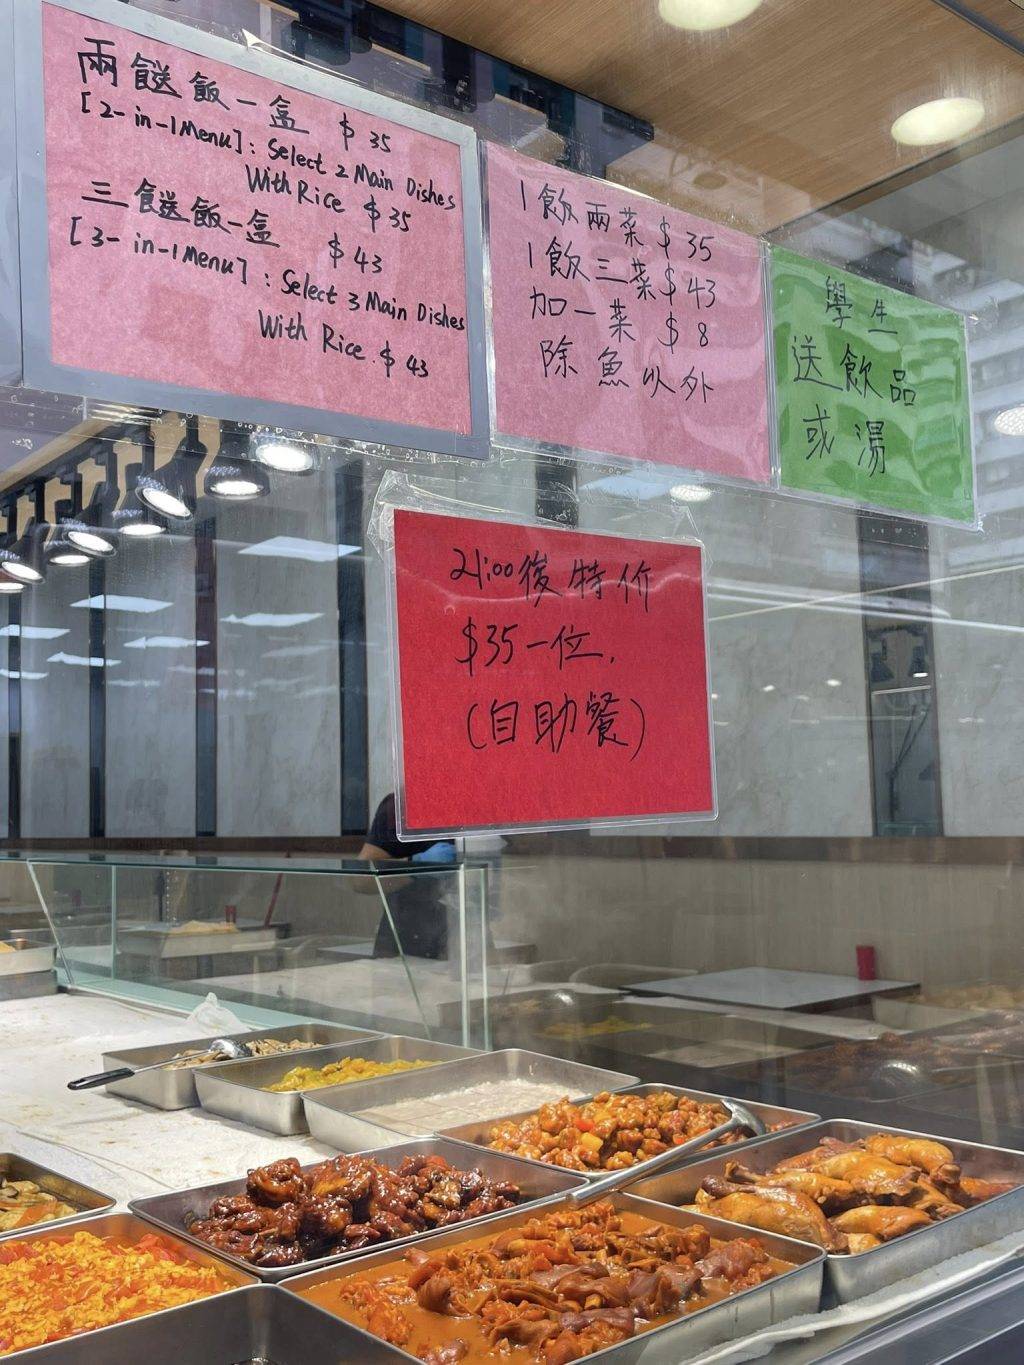 兩餸飯一盒 $35
[2-in-1 Menu]: Select 2 Main Dishes
With Rice $35
三餸飯一盒 $43
[3-in-1 Menu]: Select 3 Main Dishes
With Rice. $43
1飯兩菜 $35
1飯三菜 $43
加一菜 $8
除魚以外
學生
送飲品
或湯
21:00後特价
$35一位,
(自助餐)